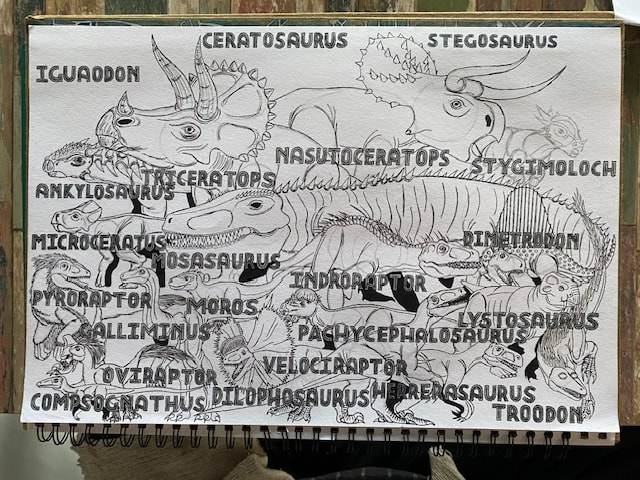 CERATOSAURUS
STEGOSAURUS
IGUAODON
NASUTOCERATOPS
STYGIMOLOCH
TRICERATOPS
ANKYLOSAURUS
MICROCERATUS
DIMETRODON
MOSASAURUS
INDORAPTOR
PYRORAPTOR
MOROS
LYSTOSAURUS
GALLIMINUS
PACHYCEPHALOSAURUS
VELOCIRAPTOR
OVIRAPTOR
COMPSOGNATHUS
DILOPHOSAURUS
HERRERASAURUS
TROODON